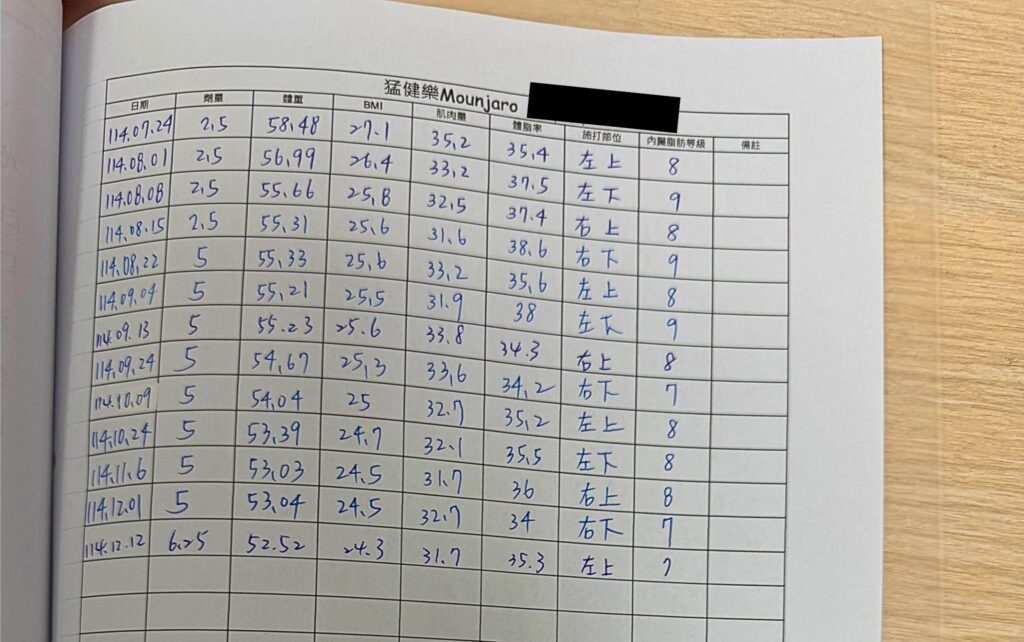 猛健樂Mounjaro
日期 劑量 體重 BMI 肌肉量 體脂率 施打部位 內臟脂肪等級 備註
114.07.24 2.5 58.48 27.1 35.2 35.4 左上 8
114.08.01 2.5 56.99 26.4 33.2 37.5 左下 9
114.08.08 2.5 55.66 25.8 32.5 37.4 右上 8
114.08.15 2.5 55.31 25.6 31.6 38.6 右下 9
114.08.22 5 55.33 25.6 33.2 35.6 左上 8
114.09.04 5 55.21 25.5 31.9 38 左下 9
114.09.13 5 55.23 25.6 33.8 34.3 右上 8
114.09.24 5 54.67 25.3 33.6 34.2 右下 7
114.10.09 5 54.04 25 32.7 35.2 左上 8
114.10.24 5 53.39 24.7 32.1 35.5 左下 8
114.11.6 5 53.03 24.5 31.7 36 右上 8
114.12.01 5 53.04 24.5 32.7 34 右下 7
114.12.12 6.25 52.52 24.3 31.7 35.3 左上 7